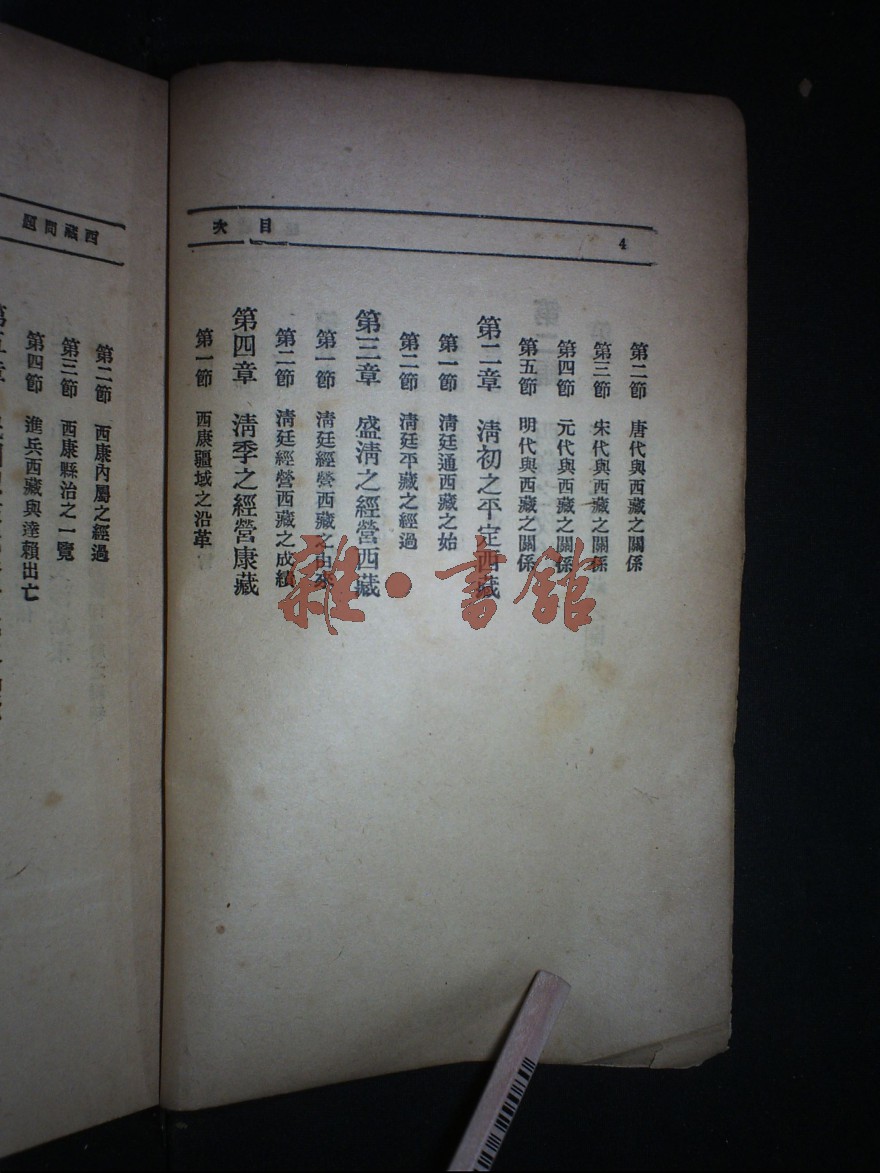 目次
4
第二節 唐代與西藏之關係
第三節 宋代與西藏之關係
第四節 元代與西藏之關係
第五節 明代與西藏之關係
第二章 淸初之平定西藏
第一節 淸廷通西藏之始
第二節 淸廷平藏之經過
第三章 盛淸之經營西藏
第一節 淸廷經營西藏之由來
第二節 淸廷經營西藏之成績
第四章 淸季之經營康藏
第一節 西康疆域之沿革
西藏問題
第二節 西康內屬之經過
第三節 西康縣治之一覽
第四節 進兵西藏與達賴出亡
雜·書館